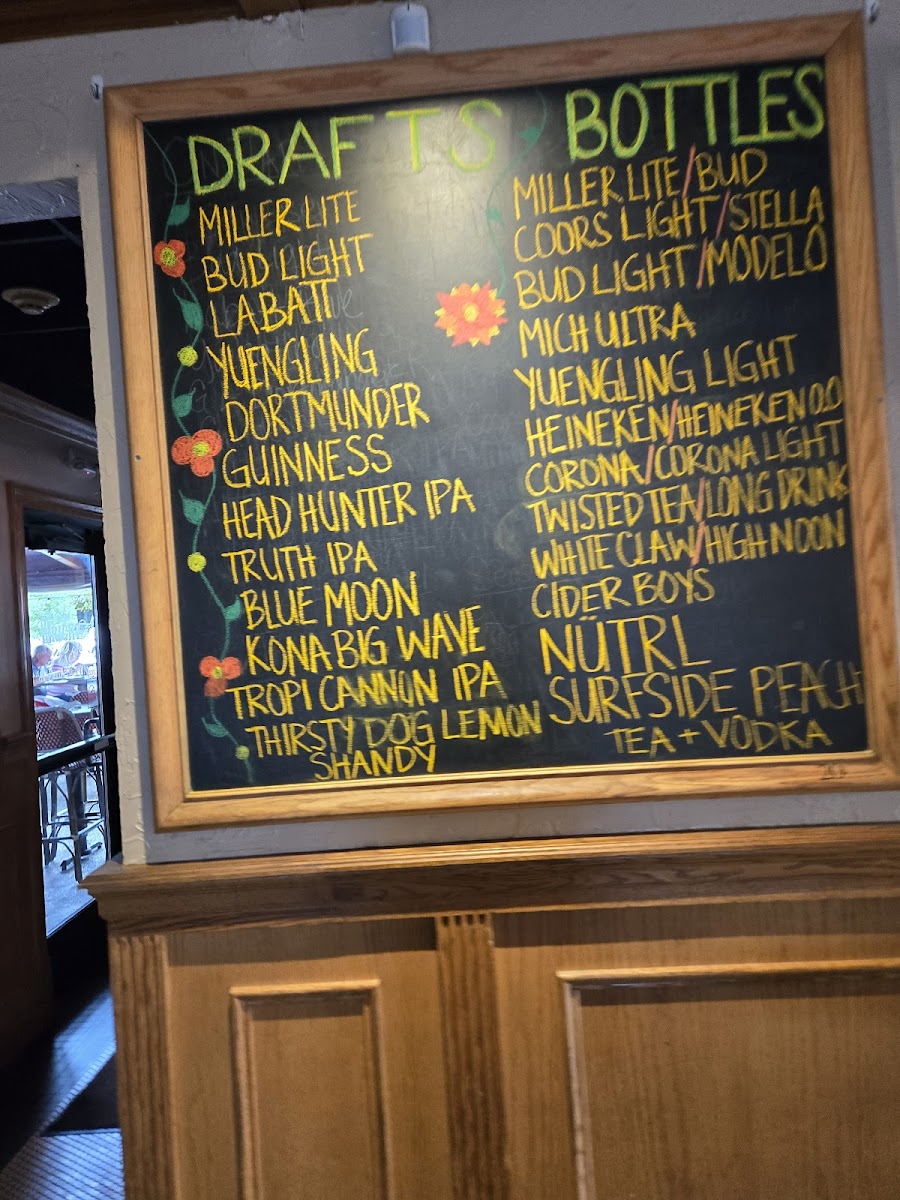 DRAFTS
MILLER LITE
BUD LIGHT
LABATT
YUENGLING
DORTMUNDER
GUINNESS
HEAD HUNTER IPA
TRUTH IPA
BLUE MOON
KONA BIG WAVE
TROPICANNON IPA
THIRSTY DOG LEMON
SHANDY
BOTTLES
MILLER LITE/BUD
COORS LIGHT/STELLA
BUD LIGHT/MODELO
MICH ULTRA
YUENGLING LIGHT
HEINEKEN/HEINEKEN 0.0
CORONA/CORONA LIGHT
TWISTED TEA/LONG DRINK
WHITE CLAW/HIGH NOON
CIDER BOYS
NÜTRL
SURFSIDE PEACH
TEA + VODKA